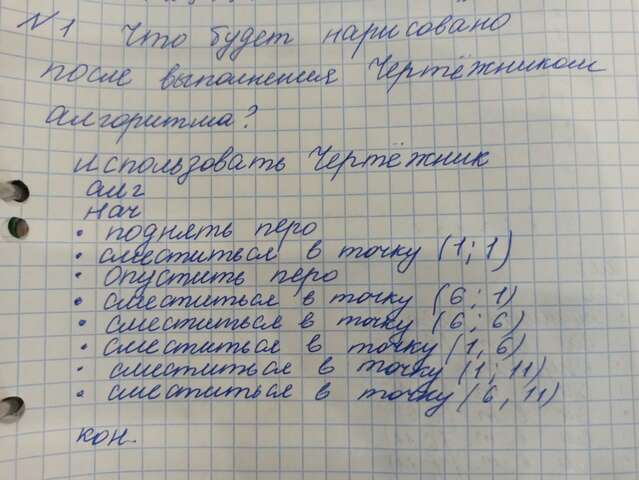 №1 Что будет нарисовано
после выполнения Чертёжником
алгоритма?
использовать Чертёжник
алг
нач
• поднять перо
• сместиться в точку (1; 1)
• Опустить перо
• сместиться в точку (6; 1)
• сместиться в точку (6; 6)
• сместиться в точку (1, 6)
• сместиться в точку (1; 11)
• сместиться в точку (6, 11)
кон.